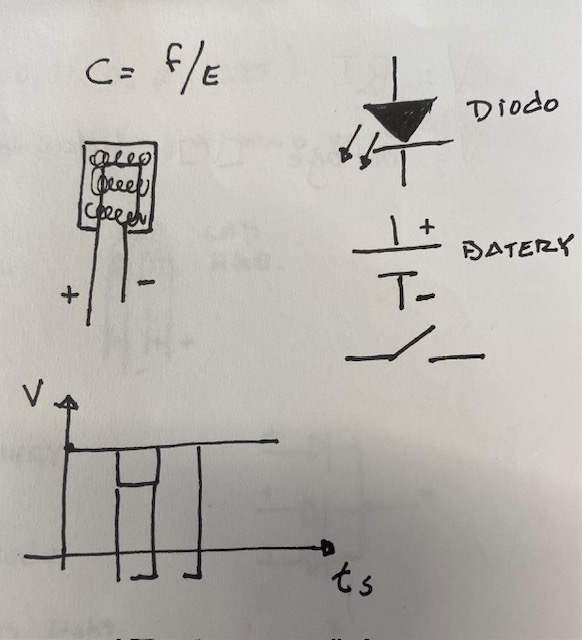 C = f/E
Diodo
+
BATERY
-
+ -
V
ts